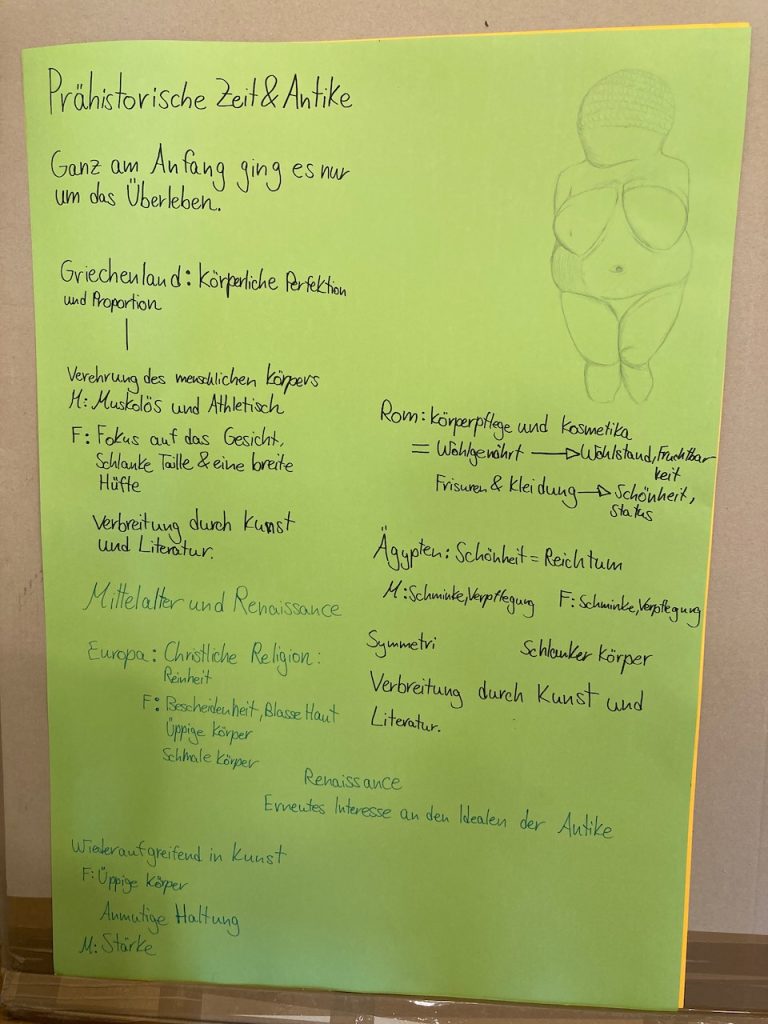 Prähistorische Zeit & Antike
Ganz am Anfang ging es nur
um das Überleben.
Griechenland: Körperliche Perfektion
und Proportion
Verehrung des menschlichen Körpers
M: Muskolös und Athletisch
F: Fokus auf das Gesicht,
Schlanke Taille & eine breite
Hüfte
Verbreitung durch Kunst
und Literatur.
Rom: Körperpflege und Kosmetika
= Wohlgenährt → Wohlstand, Fruchtbar
keit
Frisuren & Kleidung → Schönheit,
Status
Ägypten: Schönheit = Reichtum
M: Schminke, Verpflegung F: Schminke, Verpflegung
Symmetri Schlanker Körper
Verbreitung durch Kunst und
Literatur.
Mittelalter und Renaissance
Europa: Christliche Religion:
Reinheit
F: Bescheidenheit, Blasse Haut
Üppige Körper
Schmale Körper
Renaissance
Erneutes Interesse an den Idealen der Antike
Wiederaufgreifend in Kunst
F: Üppige Körper
Anmutige Haltung
M: Stärke